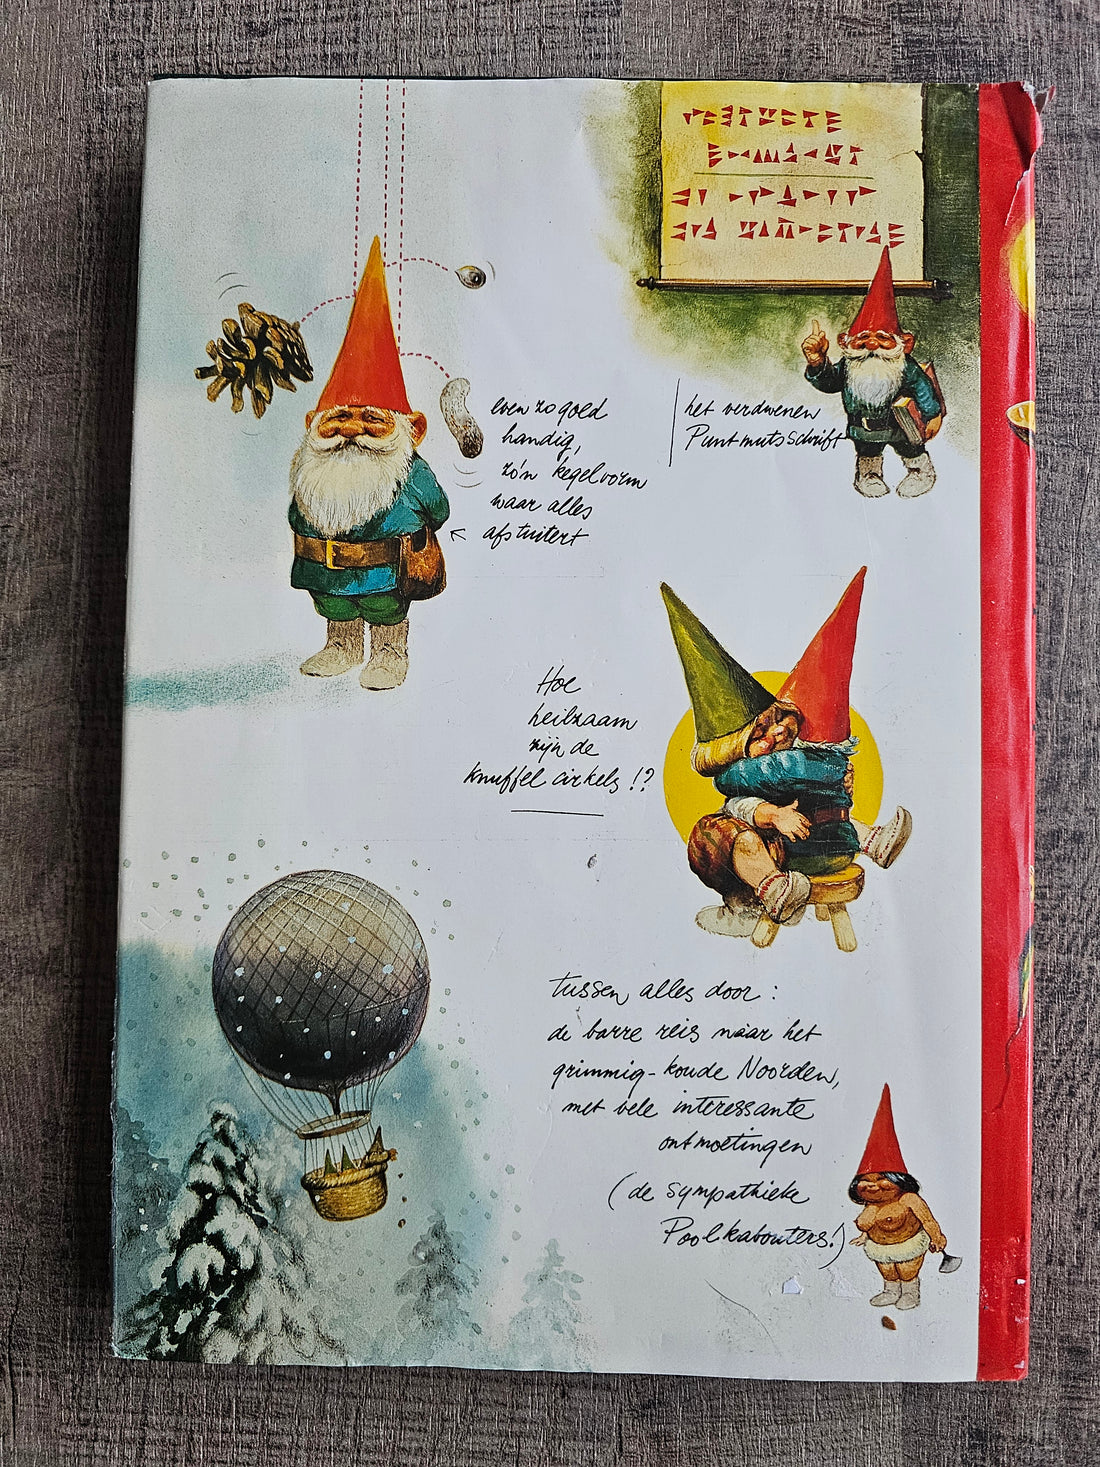 even zo goed
handig,
zó'n kegelvorm
waar alles
afstuitert
het verdwenen
Puntmutsschrift
Hoe
heilzaam
zijn de
knuffel cirkels !?
tussen alles door :
de barre reis naar het
grimmig-koude Noorden,
met vele interessante
ontmoetingen
(de sympathieke
Poolkabouters!)